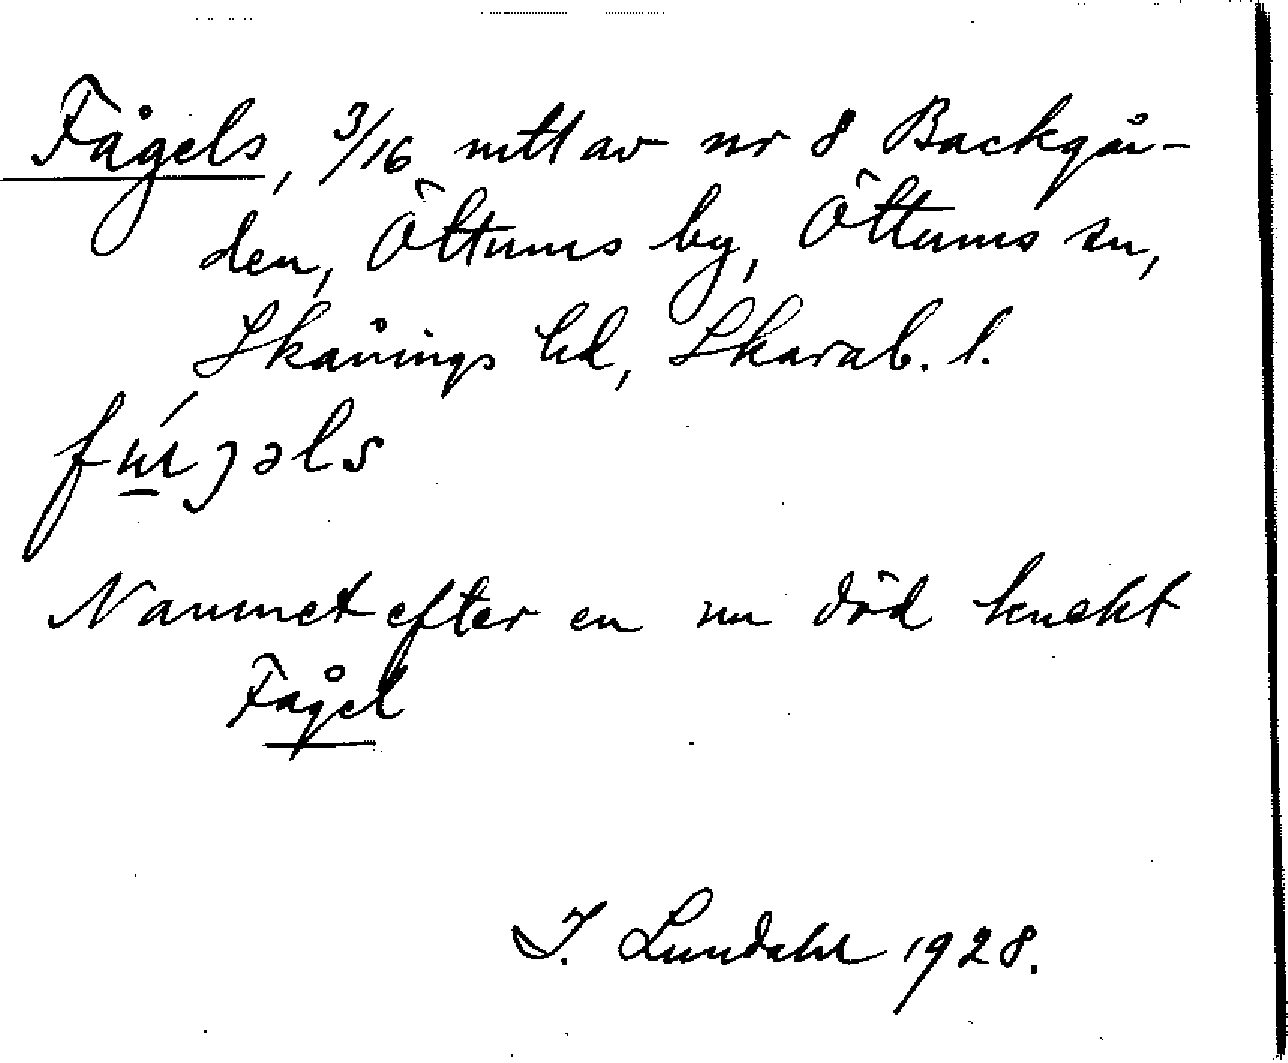 Fågels, 3/16 mtl av nr 8 Backgår-
den, Öttums by, Öttums sn,
Skånings hd, Skarab. l.
Namnet efter en nu död knekt
Fågel
I. Lundahl 1928.